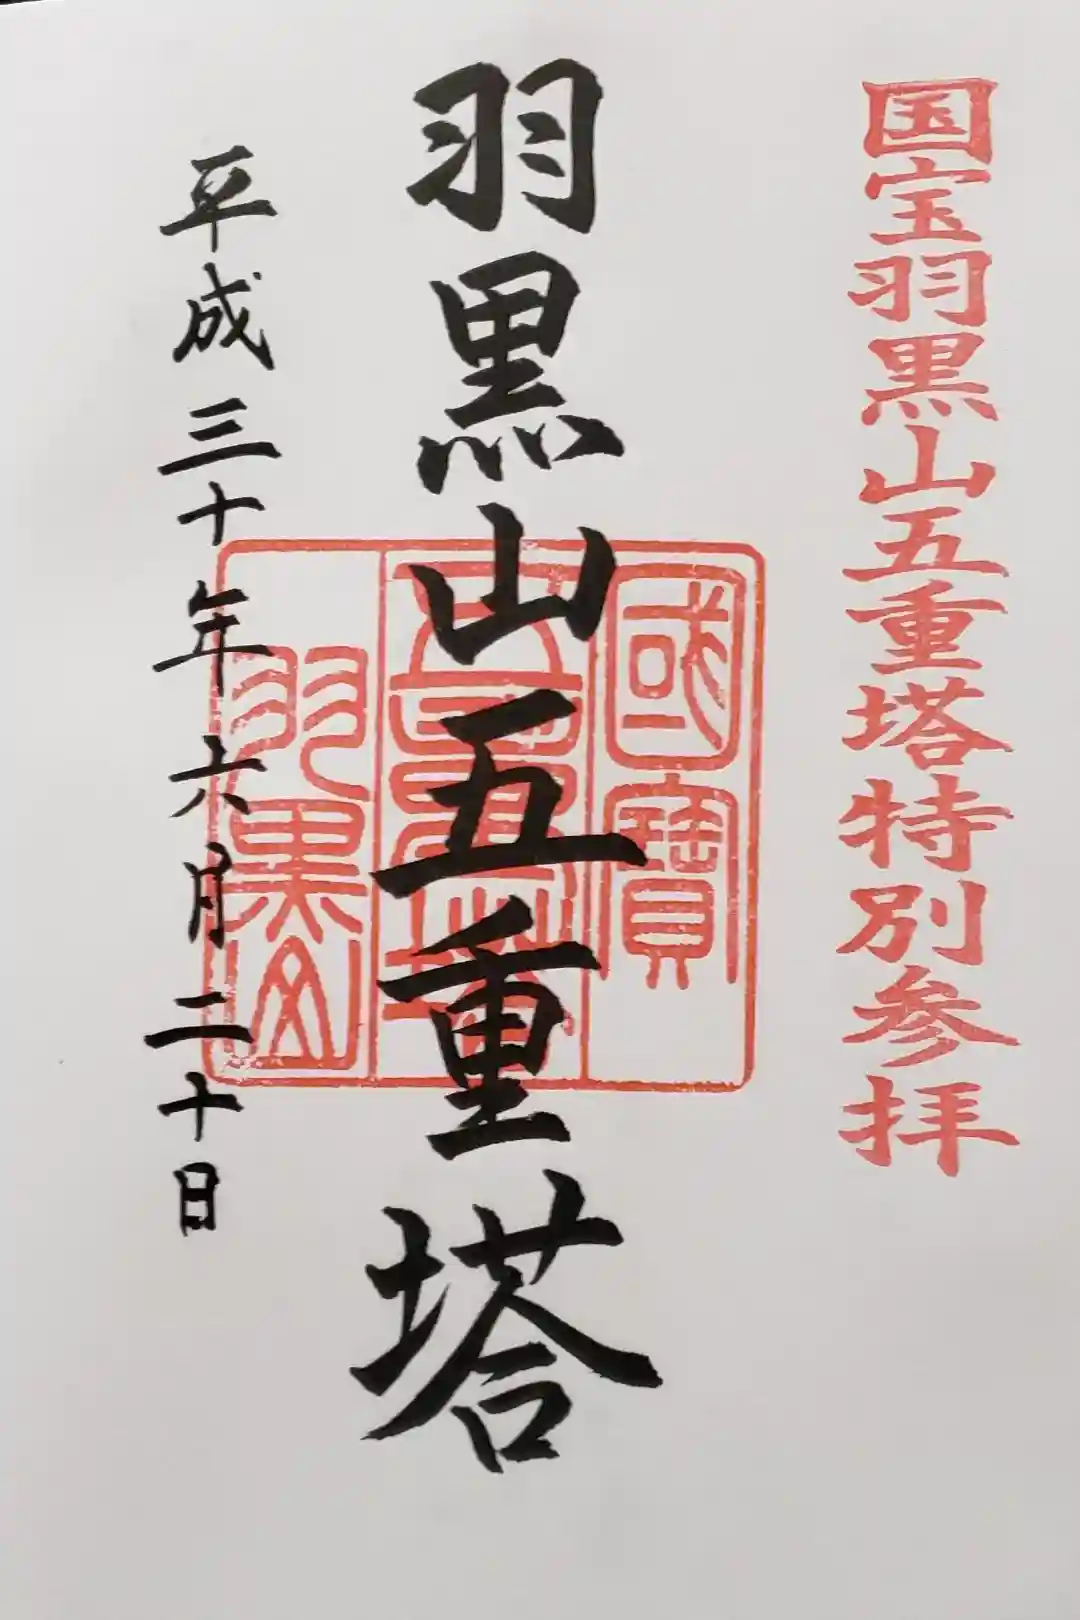 国宝羽黒山五重塔特別参拝
羽黒山五重塔
國寶
五重塔
羽黒山
平成三十年六月二十日